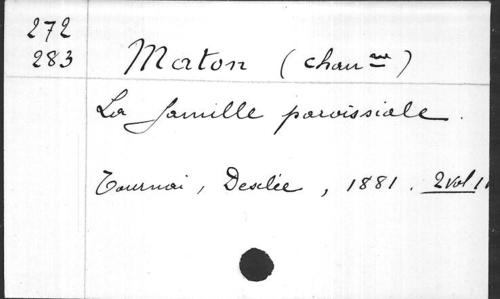 272
283
Maton (chan ne)
La famille paroissiale.
Tournai, Desclée, 1881. 2 vol